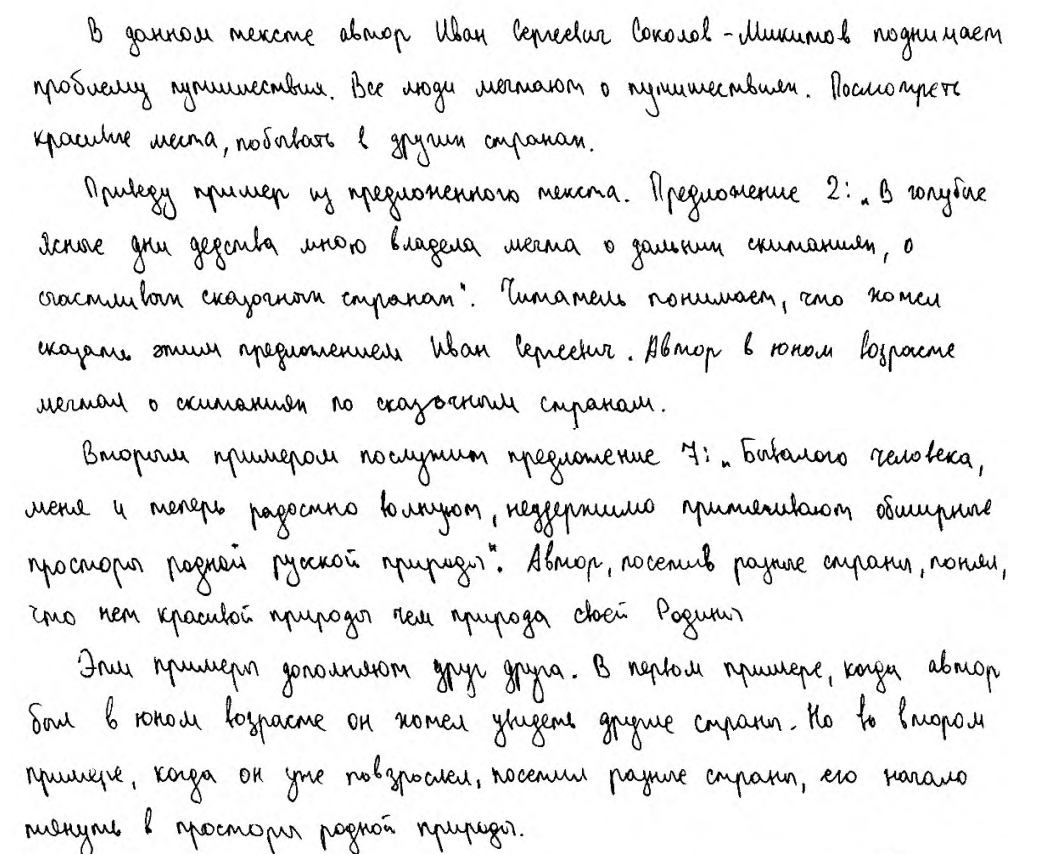 В данном тексте автор Иван Сергеевич Соколов-Микитов поднимает
проблему путишествия. Все люди мечтают о путишествиях. Посмотреть
красивые места, побывать в других странах.
Приведу пример из предложенного текста. Предложение 2: „В голубые
ясные дни дедства мною владела мечта о дальних скитаниях, о
счастливых сказочных странах". Читатель понимает, что хотел
сказать этим предложением Иван Сергеевич. Автор в юном возрасте
мечтал о скитаниях по сказочным странам.
Вторым примером послужит предложение 7: „Бывалого человека,
меня и теперь радостно волнуют, неудержимо притягивают обширные
просторы родной русской природы". Автор, посетив разные страны, понял,
что нет красивой природы чем природа своей Родины
Эти примеры дополняют друг друга. В первом примере, когда автор
был в юном возрасте он хотел увидеть другие страны. Но во втором
примере, когда он уже повзрослел, посетил разные страны, его начало
тянуть в просторы родной природы.